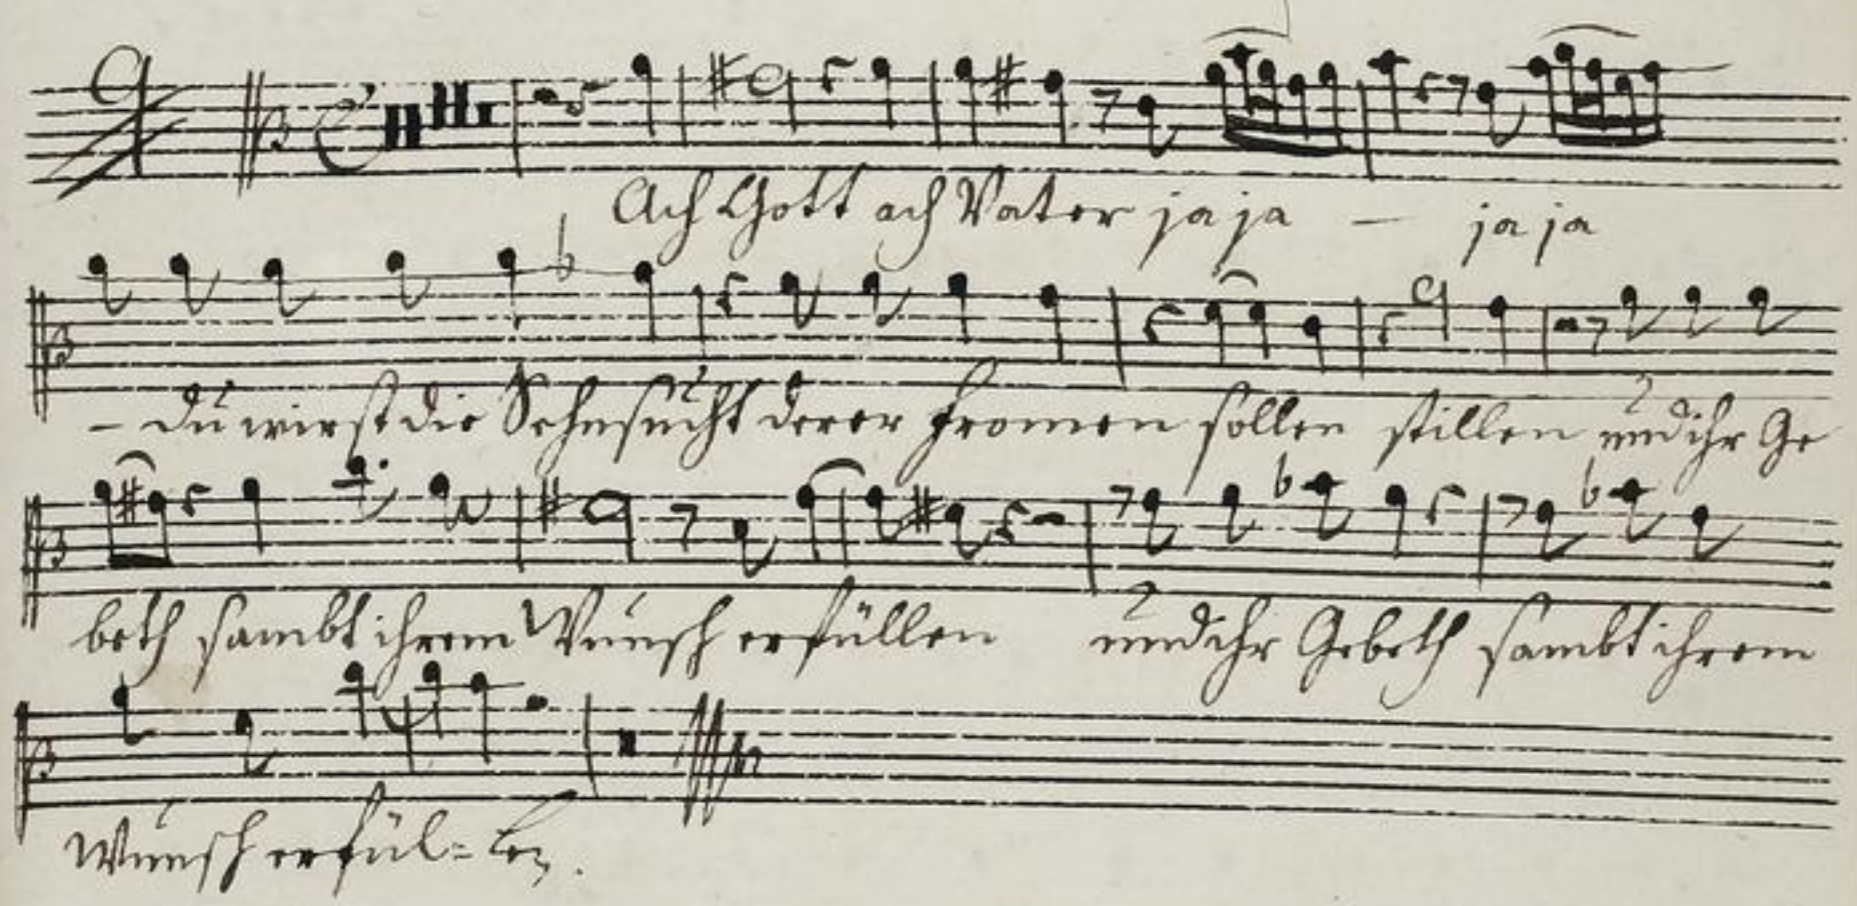 Ach Gott ach Vater ja ja – ja ja
– du wirst die Sehnsucht derer Fromen sollen stillen und ihr Ge
beth sambt ihrem Wunsch erfüllen und ihr Gebeth sambt ihrem
Wunsch erfül= len.